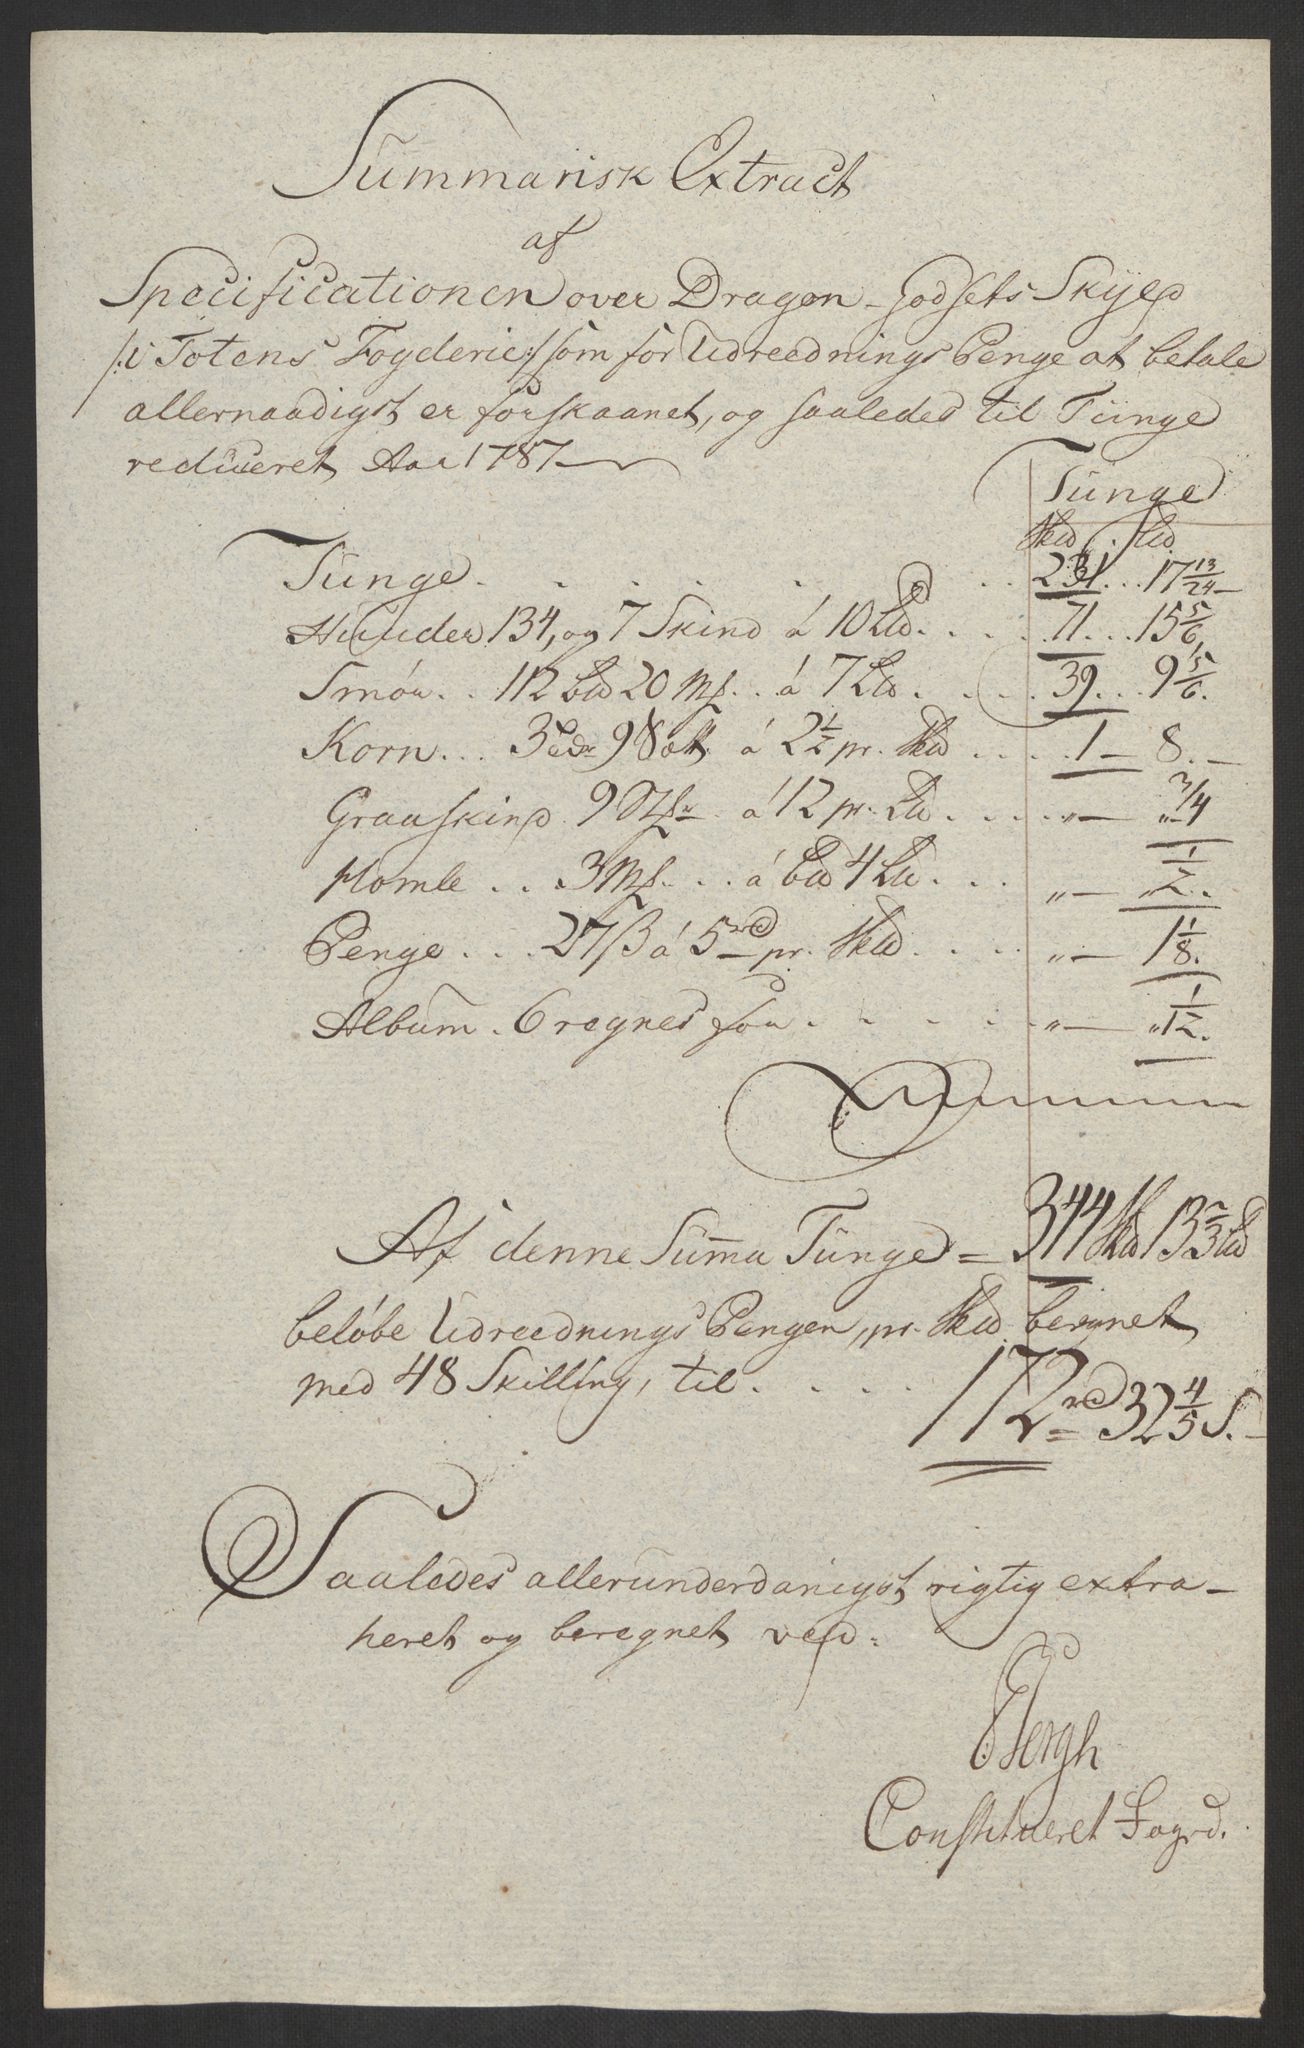 Summarisk Extract
af
Specificationen over Dragon-Godsets Skyld
/:i Totens Fogderie:/ som for Udreednings Penge at betale
allernaadigst er forskaanet, og saaledes til Tunge
reduceret Aar 1787
Tunge
Skd . Ld
Tunge . . . . . . . 231 . . . 17 13/24
Huuder 134, og 7 Skind á 10 Ld . . . . 71 . . . 15 5/6
Smør . . 112 bd 20 Mk . . á 7 Ld . . . . 39 . . . 9 5/6
Korn . . . 3 9 Sætt. á 2 1/2 pr. Skd . . . . 1 - 8 . -
Graaskind 9 á 12 pr. Ld . . . . „ - „ 3/4
Homle . . . 3 Mk . . . á bd 4 Ld . . . „ - 1/2 .
Penge . . . 27 ß á 5 rd pr. Skd . . . . „ - 1 1/8 .
Album . 6 regnes for . . . . . „ - „ 1/12 .
Af denne Summa Tunge = 344 Skd 13 2/3 Ld
beløbe Udreednings Pengen, pr. Skd beregnet
med 48 Skilling, til . . . . 172 rd 32 4/5 S. -
Saaledes allerunderdanigst rigtig extra-
heret og beregnet ved:
Bergh
Constitueret Fogd.